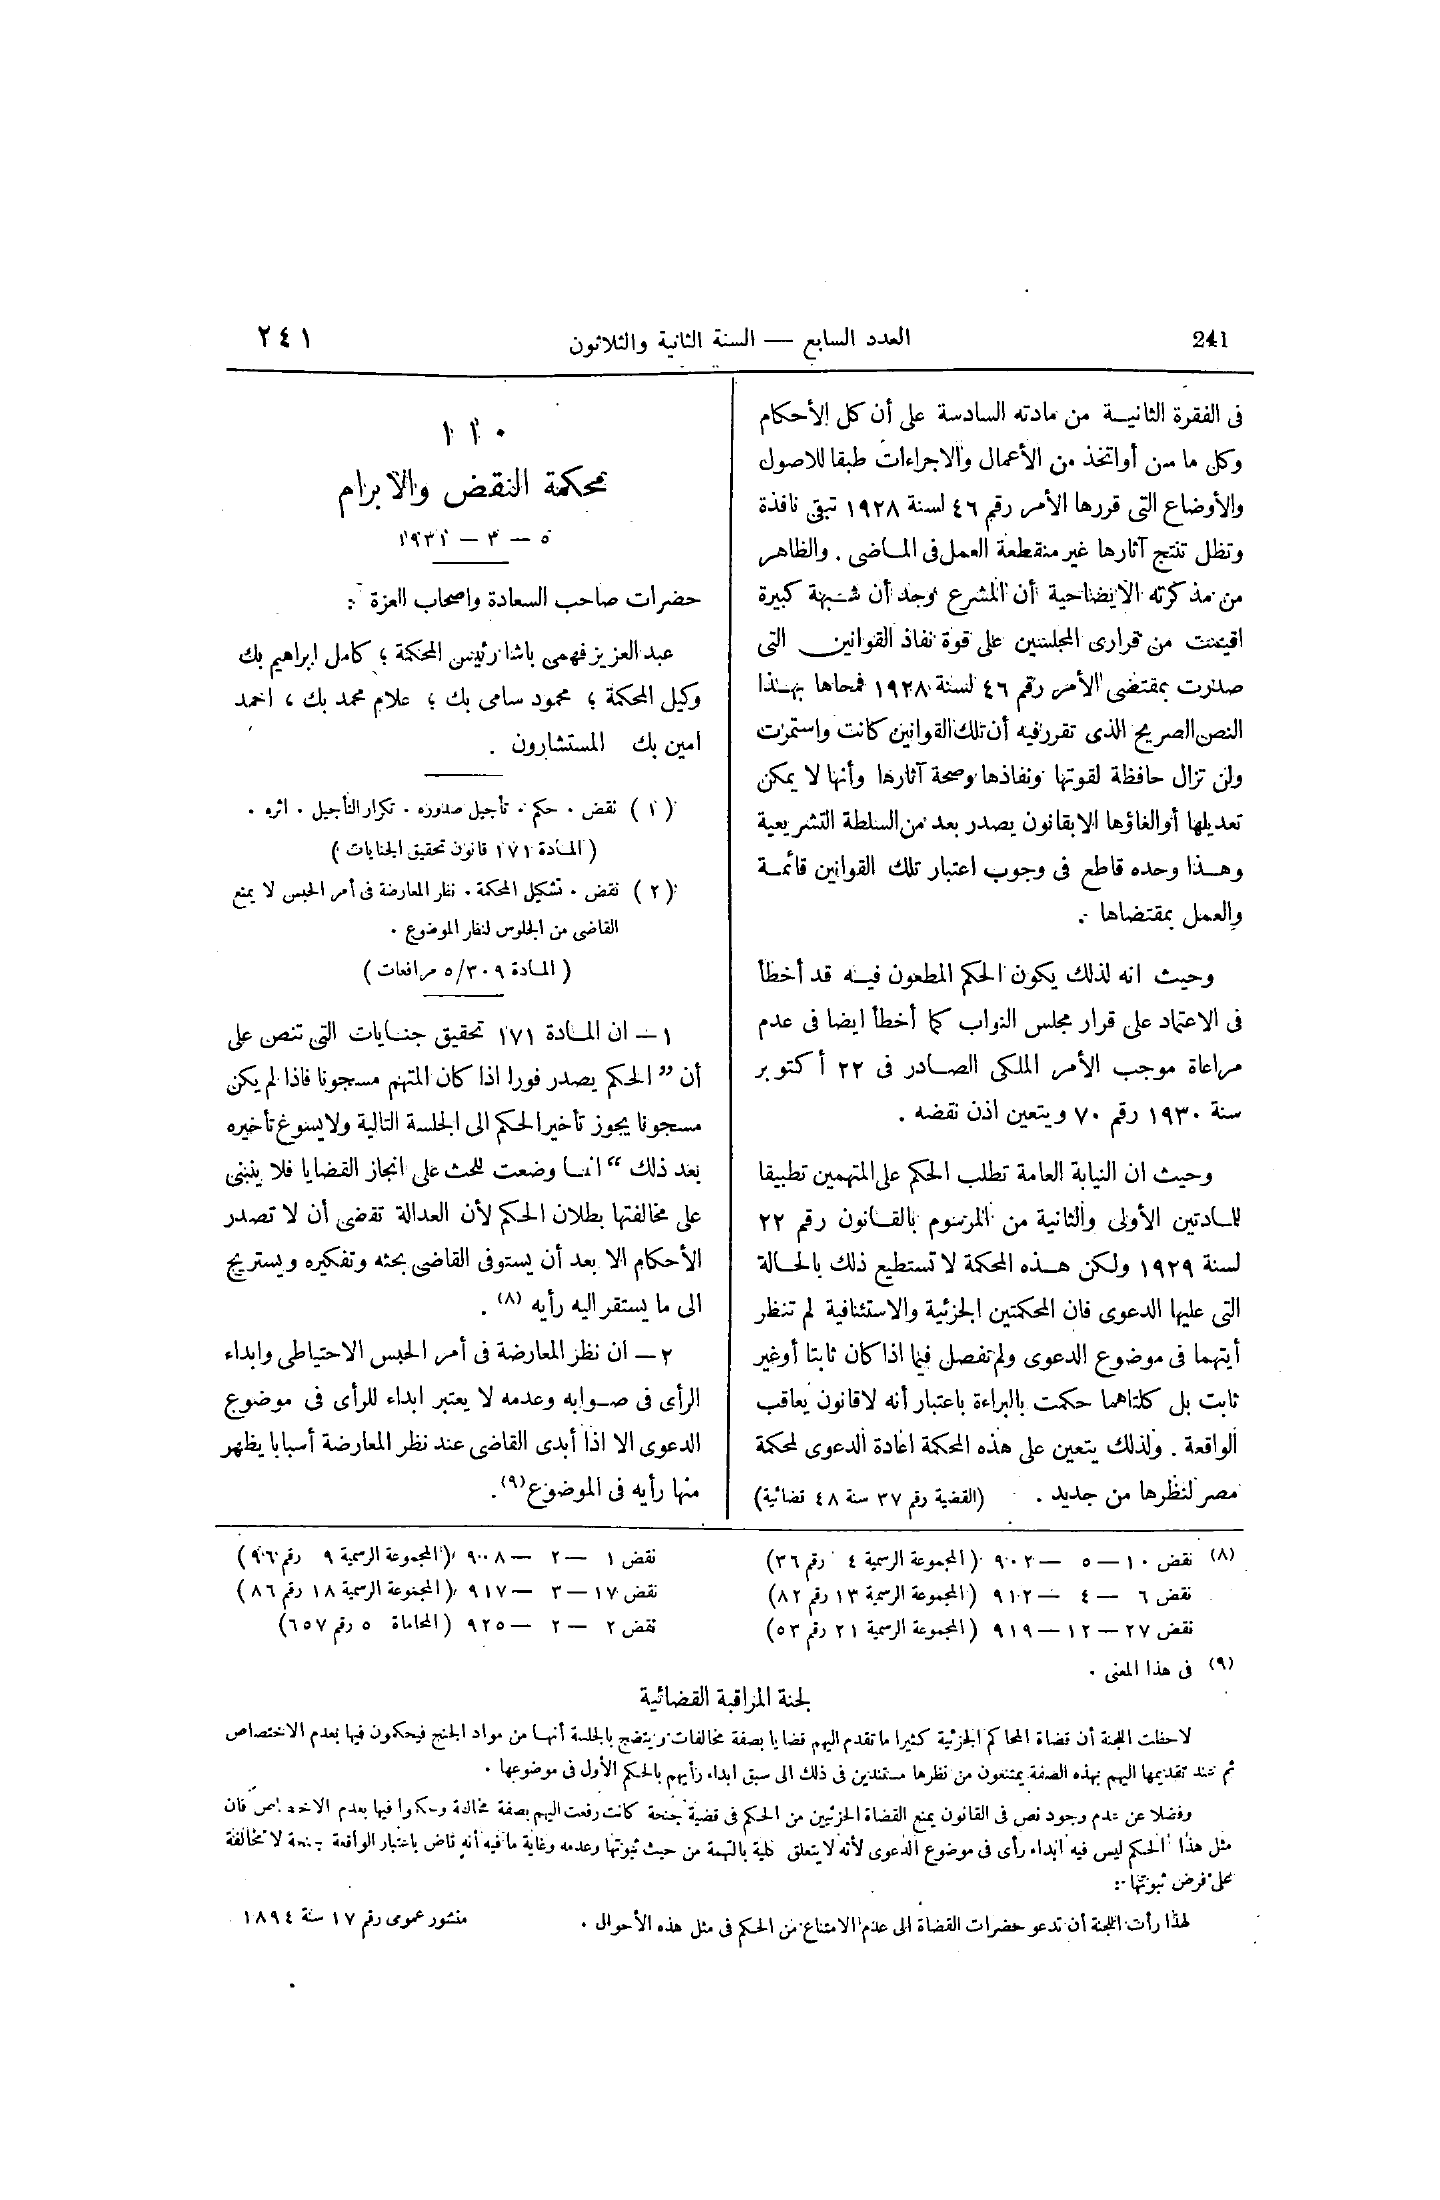 241
العدد السابع — السنة الثانية والثلاثون
٢٤١
فى الفقرة الثانيـة من مادته السادسة على أن كل الأحكام
وكل ما سن أو اتخذ من الأعمال والاجراءات طبقا للاصول
والأوضاع التى قررها الأمر رقم ٤٦ لسنة ١٩٢٨ تبقى نافذة
وتظل تنتج آثارها غير منقطعة العمل فى المـاضى . والظاهر
من مذكرته الايضاحية أن المشرع وجد أن شـبهة كبيرة
اقيمت من قرارى المجلسين على قوة نفاذ القوانين التى
صدرت بمقتضى الأمر رقم ٤٦ لسنة ١٩٢٨ فمحاها بهـذا
النص الصريح الذى تقرر فيه أن تلك القوانين كانت واستمرت
ولن تزال حافظة لقوتها ونفاذها وصحة آثارها وأنها لا يمكن
تعديلها أو الغاؤها الا بقانون يصدر بعد من السلطة التشريعية
وهـذا وحده قاطع فى وجوب اعتبار تلك القوانين قائمـة
والعمل بمقتضاها .
وحيث انه لذلك يكون الحكم المطعون فيـه قد أخطأ
فى الاعتماد على قرار مجلس النواب كما أخطأ ايضا فى عدم
مراعاة موجب الأمر الملكى الصـادر فى ٢٢ أكتوبر
سنة ١٩٣٠ رقم ٧٠ ويتعين اذن نقضه .
وحيث ان النيابة العامة تطلب الحكم على المتهمين تطبيقا
للمـادتين الأولى والثانية من المرسوم بالقـانون رقم ٢٢
لسنة ١٩٢٩ ولكن هـذه المحكمة لا تستطيع ذلك بالحـالة
التى عليها الدعوى فان المحكمتين الجزئية والاستئنافية لم تنظر
أيتهما فى موضوع الدعوى ولم تفصل فيما اذا كان ثابتا أو غير
ثابت بل كلتاهما حكمت بالبراءة باعتبار أنه لا قانون يعاقب
الواقعة . ولذلك يتعين على هذه المحكمة اعادة الدعوى لمحكمة
مصر لنظرها من جديد . (القضية رقم ٣٧ سنة ٤٨ قضائية)
١١٠
محكمة النقض والابرام
٥ — ٣ — ١٩٣١
حضرات صاحب السعادة واصحاب العزة :
عبد العزيز فهمى باشا رئيس المحكمة ؛ كامل ابراهيم بك
وكيل المحكمة ؛ محمود سامى بك ؛ علام محمد بك ، احمد
امين بك المستشارون .
(١) نقض . حكم . تأجيل صدوره . تكرار التأجيل . اثره .
(المـادة ١٧١ قانون تحقيق الجنايات)
(٢) نقض . تشكيل المحكمة . نظر المعارضة فى أمر الحبس لا يمنع
القاضى من الجلوس لنظر الموضوع .
(المـادة ٥/٣٠٩ مرافعات)
١ — ان المـادة ١٧١ تحقيق جنـايات التى تنص على
أن ”الحكم يصدر فورا اذا كان المتهم مسجونا فاذا لم يكن
مسجونا يجوز تأخير الحكم الى الجلسة التالية ولا يسوغ تأخيره
بعد ذلك“ انمـا وضعت للحث على انجاز القضايا فلا ينبنى
على مخالفتها بطلان الحكم لأن العدالة تقضى أن لا تصدر
الأحكام الا بعد أن يستوفى القاضى بحثه وتفكيره ويستريح
الى ما يستقر اليه رأيه (٨) .
٢ — ان نظر المعارضة فى أمر الحبس الاحتياطى وابداء
الرأى فى صـوابه وعدمه لا يعتبر ابداء للرأى فى موضوع
الدعوى الا اذا أبدى القاضى عند نظر المعارضة أسبابا يظهر
منها رأيه فى الموضوع (٩) .
(٨) نقض ١٠ — ٥ — ٩٠٢ (المجموعة الرسمية ٤ رقم ٣٦)
نقض ٦ — ٤ — ٩١٢ (المجموعة الرسمية ١٣ رقم ٨٢)
نقض ٢٧ — ١٢ — ٩١٩ (المجموعة الرسمية ٢١ رقم ٥٣)
نقض ١ — ٢ — ٩٠٨ (المجموعة الرسمية ٩ رقم ٩٦)
نقض ١٧ — ٣ — ٩١٧ (المجموعة الرسمية ١٨ رقم ٨٦)
نقض ٢ — ٢ — ٩٢٥ (المحاماة ٥ رقم ٦٥٧)
(٩) فى هذا المعنى .
لجنة المراقبة القضائية
لاحظت اللجنة أن قضاة المحاكم الجزئية كثيرا ما تقدم اليهم قضايا بصفة مخالفات ويتضح بالجلسة أنهـا من مواد الجنح فيحكمون فيها بعدم الاختصاص
ثم عند تقديمها اليهم بهذه الصفة يمتنعون من نظرها مستندين فى ذلك الى سبق ابداء رأيهم بالحكم الأول فى موضوعها .
وفضلا عن عدم وجود نص فى القانون يمنع القضاة الجزئيين من الحكم فى قضية جنحة كانت رفعت اليهم بصفة مخالفة وحكموا فيها بعدم الاختصاص فان
مثل هذا الحكم ليس فيه ابداء رأى فى موضوع الدعوى لأنه لا يتعلق كلية بالتهمة من حيث ثبوتها وعدمه وغاية ما فيه أنه قاض باعتبار الواقعة جنحة لا مخالفة
على فرض ثبوتها .
لهذا رأت اللجنة أن تدعو حضرات القضاة الى عدم الامتناع من الحكم فى مثل هذه الأحوال .
منشور عمومى رقم ١٧ سنة ١٨٩٤